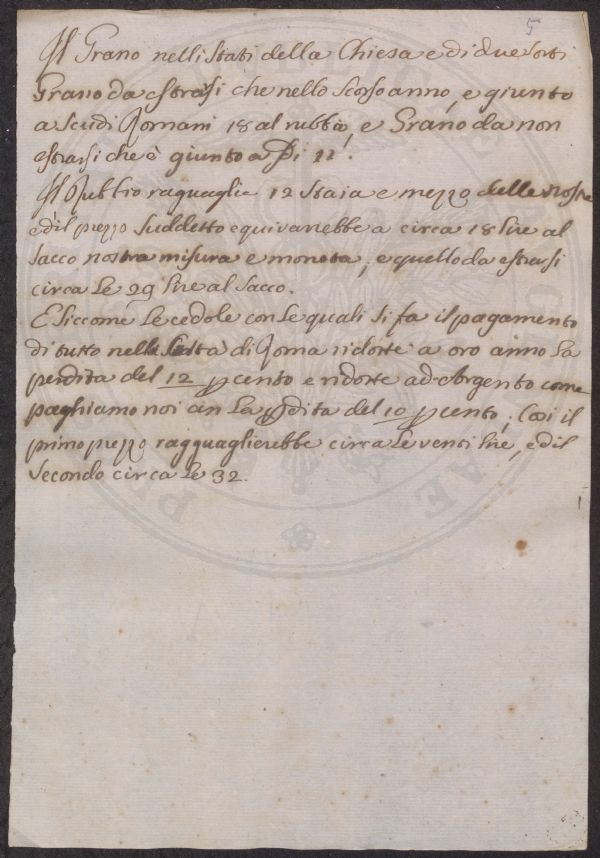 5
Il Grano nelli Stati della Chiesa e di due sorti
Grano da estrarsi che nello scorso anno, e giunto
a Scudi Romani 18 al rubbio, e Grano da non
estrarsi che è giunto a Di 11.
Il Rubbio raguaglia 12 Staia e mezzo delle nostre
ed il prezzo suddetto equivarrebbe a circa 18 lire al
sacco nostra misura e moneta, e quello da estrarsi
circa Le 29 lire al sacco.
E siccome Le cedole con Le quali si fa il pagamento
di tutto nella di Roma ridotte a oro anno La
perdita del 12 p cento e ridotte ad Argento come
paghiamo noi an La pdita del 10 p cento, Così il
primo prezzo ragguaglierebbe circa Le venti lire, ed il
secondo circa Le 32.